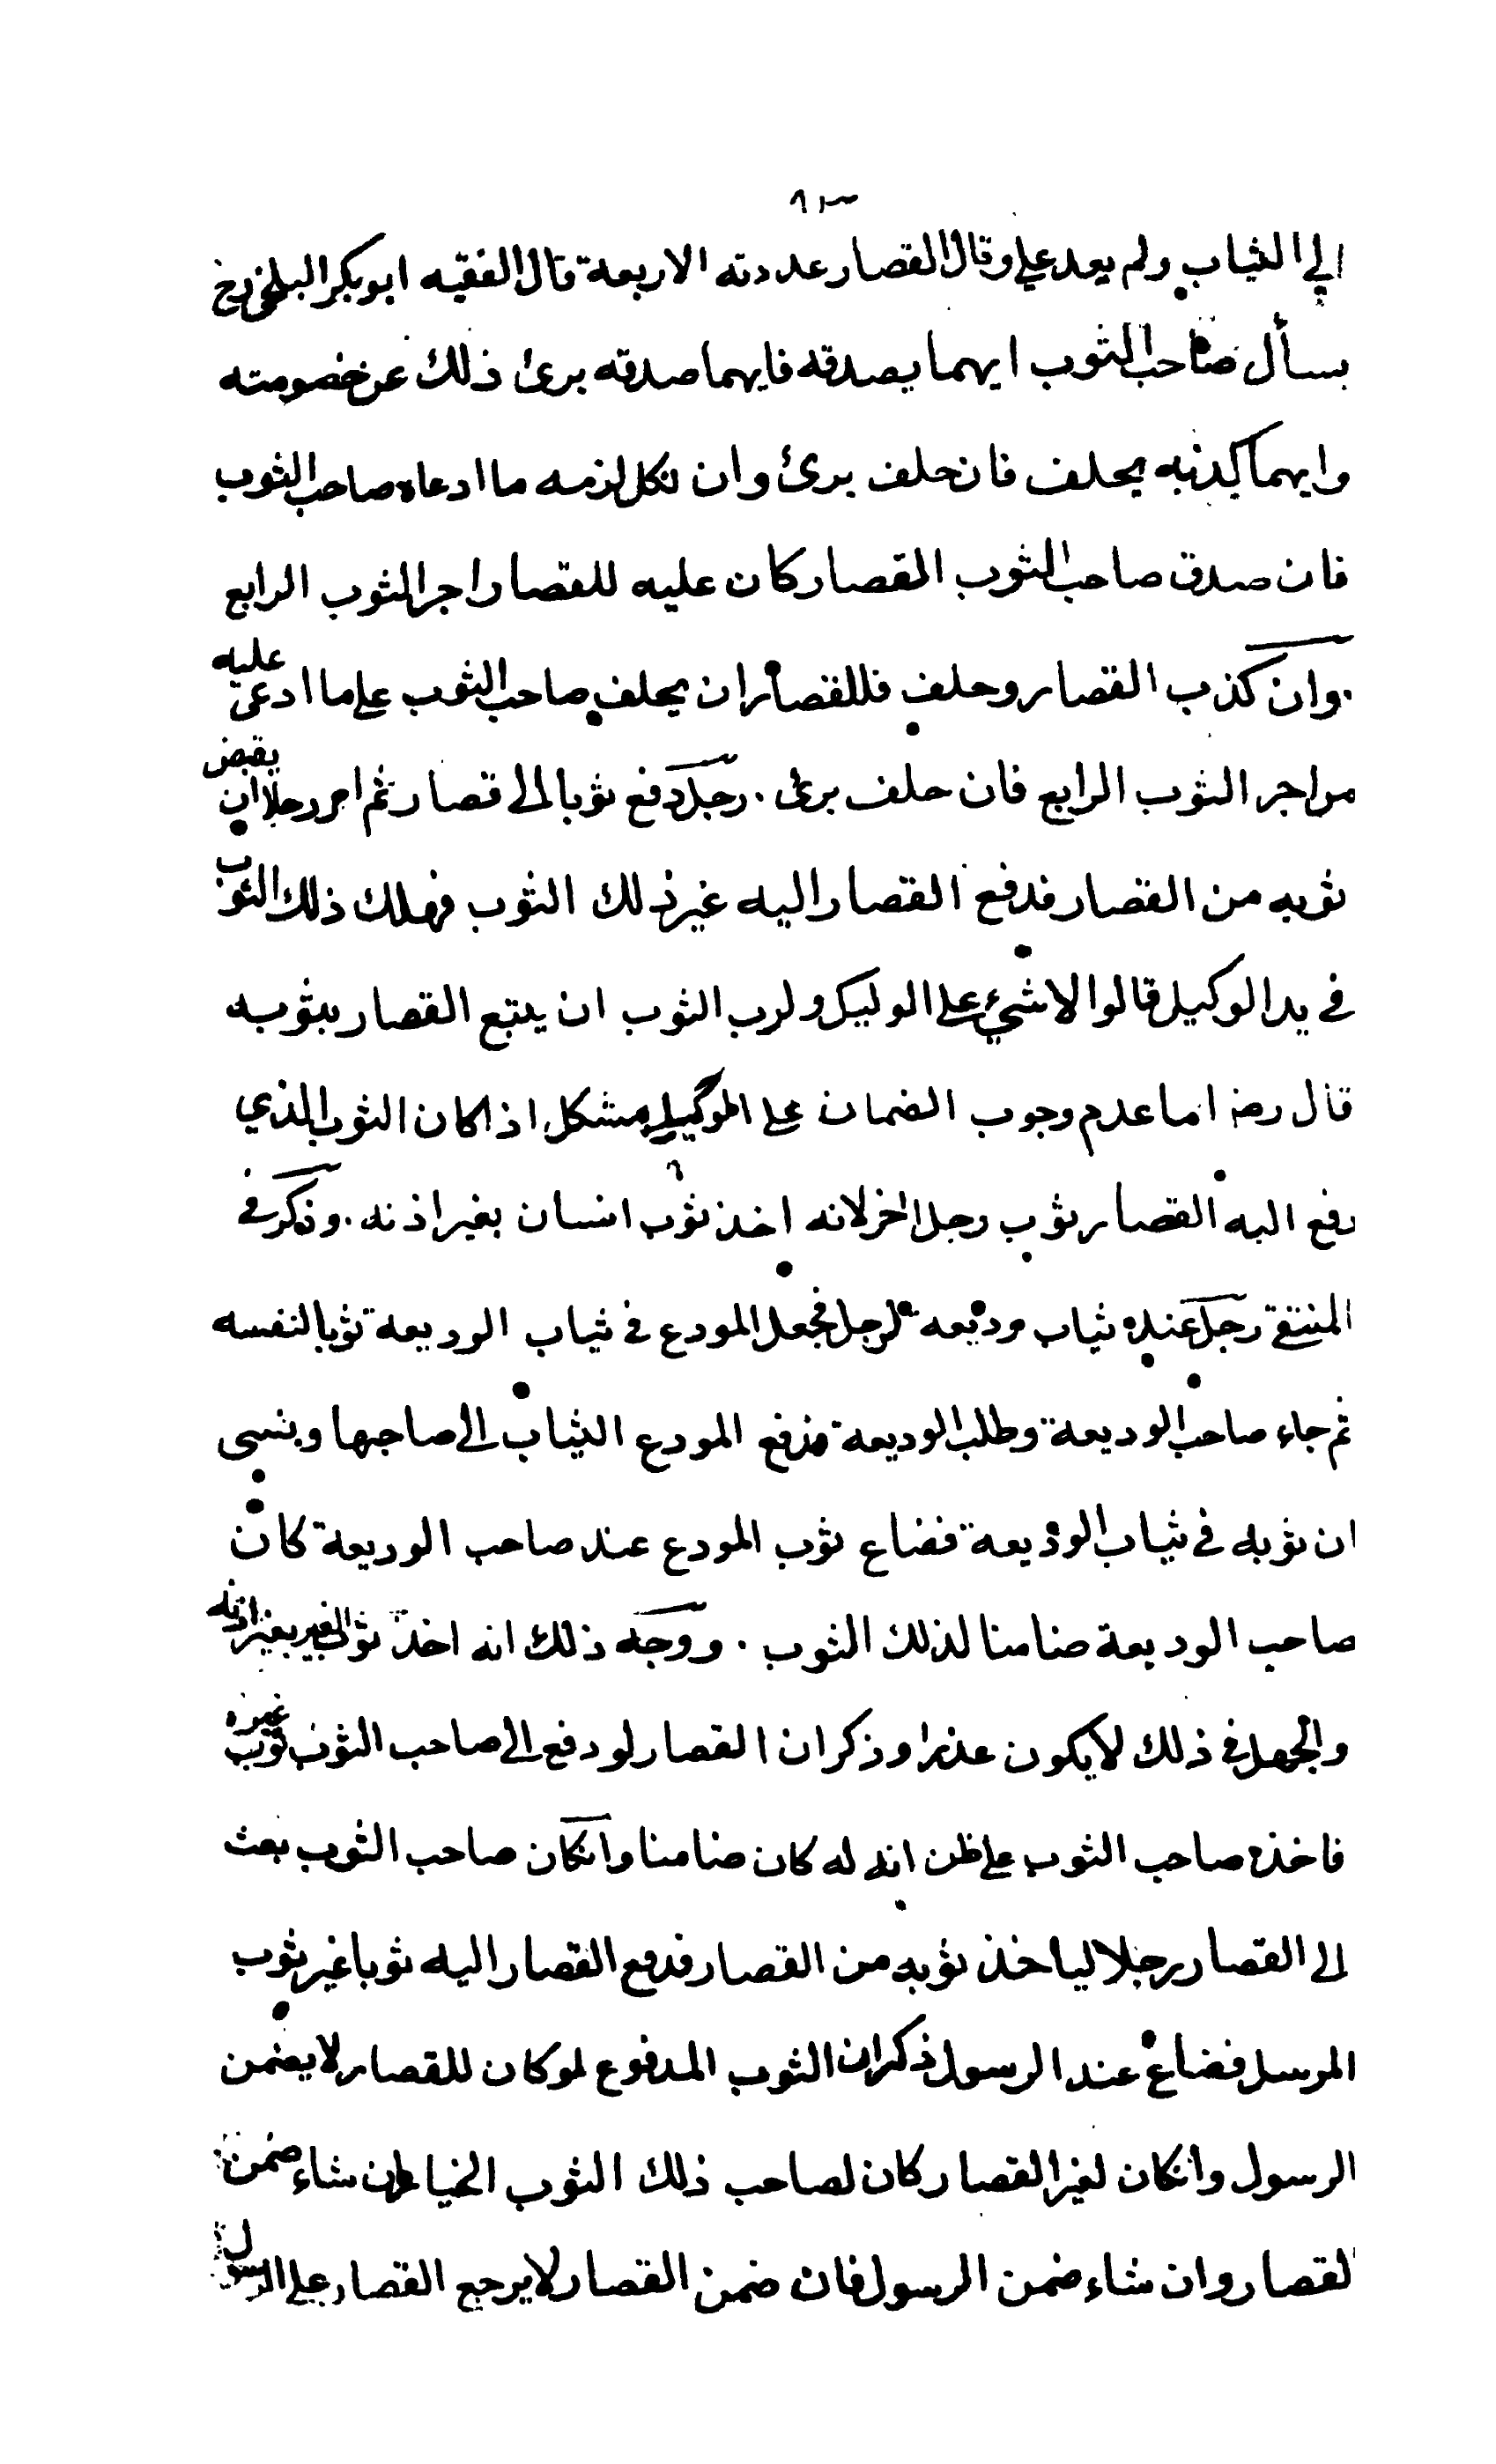 الي الثياب ولم يعد علي وقال القصار عددته الاربعة قال الفقيه ابو بكر البلخي رح
يسأل صاحب الثوب ايهما يصدقه فايهما صدقه برئ ذلك عن خصومته
وايهما كذبه يحلف فان حلف برئ وان نكل لزمه ما ادعاه صاحب الثوب
فان صدق صاحب الثوب القصار كان عليه للقصار اجر الثوب الرابع
وان كذب القصار وحلف فللقصار ان يحلف صاحب الثوب على ما ادعى عليه
من اجر الثوب الرابع فان حلف برئ . رجل دفع ثوبا الى قصار ثم امر رجلا ان يقبض
ثوبه من القصار فدفع القصار اليه غير ذلك الثوب فهلك ذلك الثوب
في يد الوكيل قالوا لا شيء على الوكيل ولرب الثوب ان يتبع القصار بثوبه
قال رضہ اما عدم وجوب الضمان على الوكيل مشكل اذا كان الثوب الذي
دفع اليه القصار ثوب رجل اخر لانه اخذ ثوب انسان بغير اذنه . وذكر في
المنتقى رجل عنده ثياب وديعة لرجل فجعل المودع في ثياب الوديعة ثوبا لنفسه
ثم جاء صاحب الوديعة وطلب الوديعة فدفع المودع الثياب الى صاحبها ونسى
ان ثوبه في ثياب الوديعة فضاع ثوب المودع عند صاحب الوديعة كان
صاحب الوديعة ضامنا لذلك الثوب . ووجه ذلك انه اخذ ثوب الغير بغير اذنه
والجهل في ذلك لا يكون عذرا وذكر ان القصار لو دفع الى صاحب الثوب ثوب غيره
فاخذه صاحب الثوب على ظن انه له كان ضامنا وانكان صاحب الثوب بعث
الى القصار رجلا لياخذ ثوبه من القصار فدفع القصار اليه ثوبا غير ثوب
المرسل فضاع عند الرسول ذكر ان الثوب المدفوع لو كان للقصار لا يضمن
الرسول وانكان لغير القصار كان لصاحب ذلك الثوب الخيار ان شاء ضمن
القصار وان شاء ضمن الرسول فان ضمن القصار لا يرجع القصار على الرسول